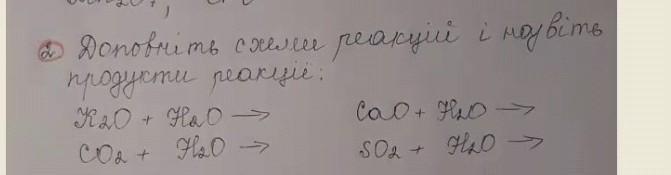 2 Доповніть схеми реакцій і назвіть
продукти реакції:
K2O + H2O → CaO + H2O →
CO2 + H2O → SO2 + H2O →